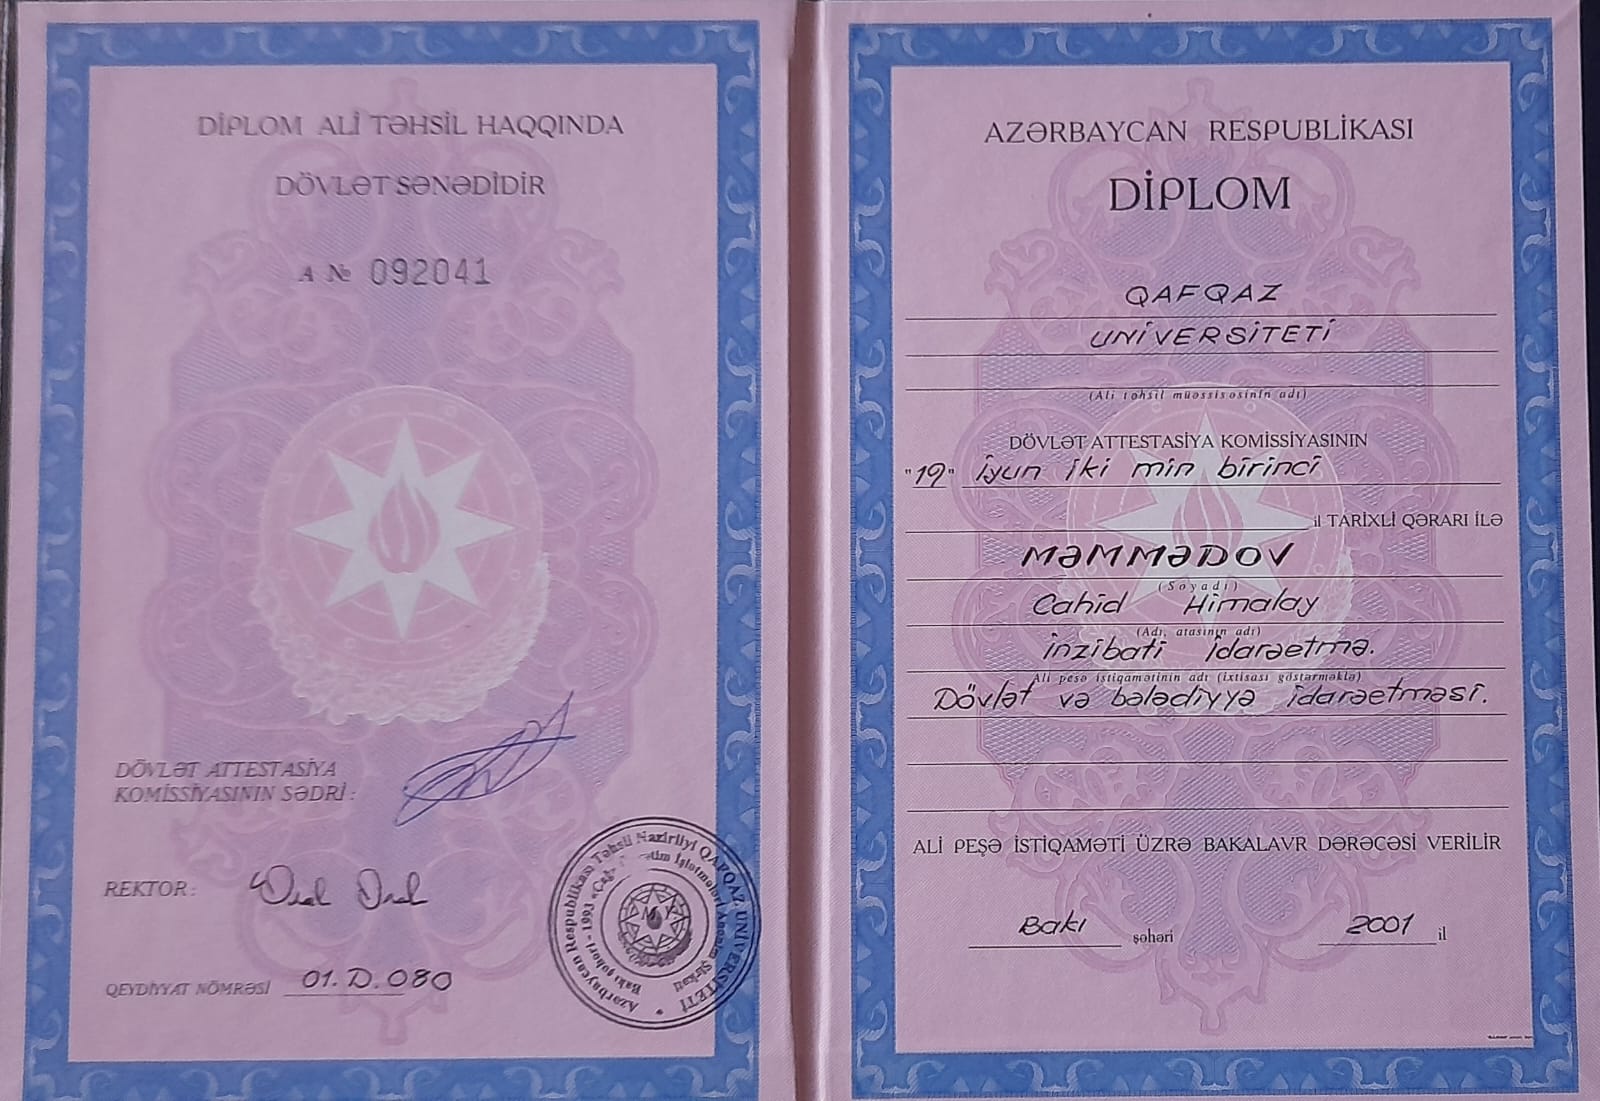 DİPLOM ALİ TƏHSİL HAQQINDA
DÖVLƏT SƏNƏDİDİR
A № 092041
DÖVLƏT ATTESTASİYA
KOMİSSİYASININ SƏDRİ:
REKTOR:
QEYDİYYAT NÖMRƏSİ 01.D.080
Azərbaycan Respublikası Təhsil Nazirliyi QAFQAZ UNİVERSİTETİ
Bakı şəhəri - 1993
İşlətmələri Anonim Şirkəti
AZƏRBAYCAN RESPUBLİKASI
DİPLOM
QAFQAZ
UNİVERSİTETİ
(Ali təhsil müəssisəsinin adı)
DÖVLƏT ATTESTASİYA KOMİSSİYASININ
"19" İyun iki min birinci
il TARİXLİ QƏRARI İLƏ
MƏMMƏDOV
(Soyadı)
Cahid Himalay
(Adı, atasının adı)
İnzibati idarəetmə.
Ali peşə istiqamətinin adı (ixtisası göstərməklə)
Dövlət və bələdiyyə idarəetməsi.
ALİ PEŞƏ İSTİQAMƏTİ ÜZRƏ BAKALAVR DƏRƏCƏSİ VERİLİR
Bakı şəhəri 2001 il